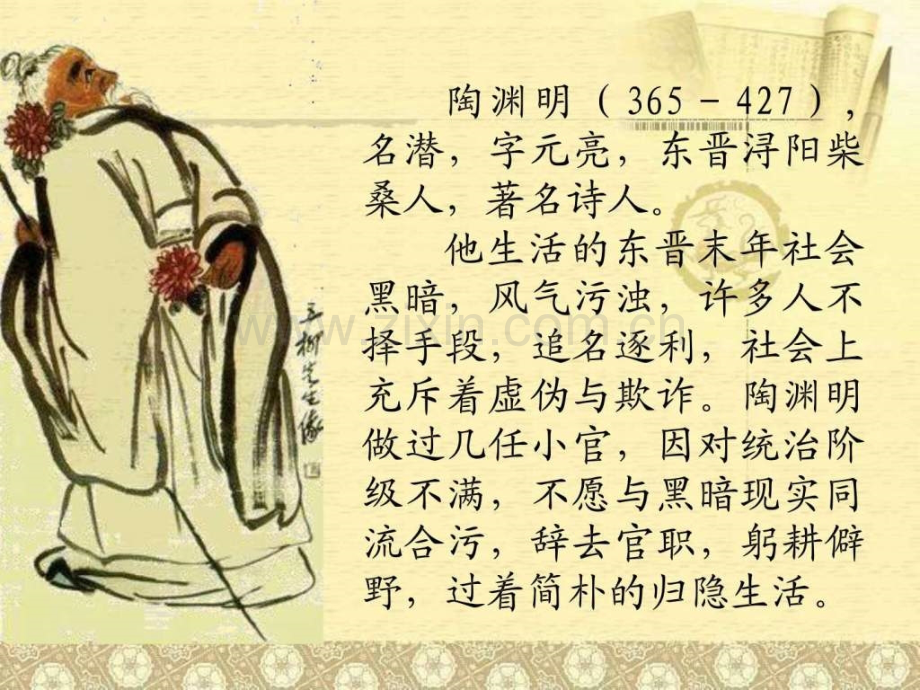 陶渊明（365－427），
名潜，字元亮，东晋浔阳柴
桑人，著名诗人。
他生活的东晋末年社会
黑暗，风气污浊，许多人不
择手段，追名逐利，社会上
充斥着虚伪与欺诈。陶渊明
做过几任小官，因对统治阶
级不满，不愿与黑暗现实同
流合污，辞去官职，躬耕僻
野，过着简朴的归隐生活。
www.zixin.com.cn
柳先生像